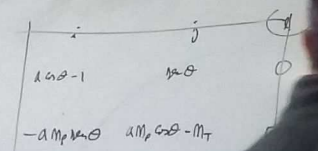 i j
a cosθ - 1 senθ
- a m_p senθ a m_p cosθ - m_T